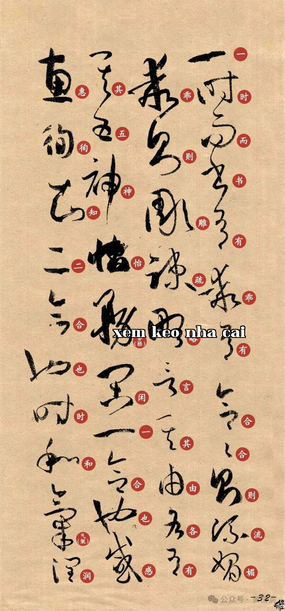 一时而书有乖有合合则流媚
乖则雕疏略言其由各有
其五神怡务闲一合也感
惠徇知二合也时和气润
xem keo nha cai
公众号
-32-